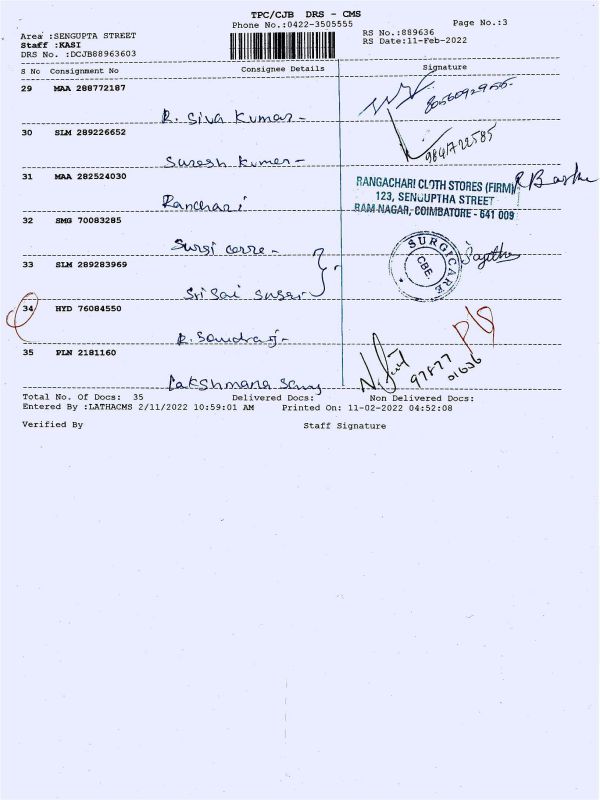 TPC/CJB DRS - CMS
Phone No.:0422-3505555
Page No.:3
Area :SENGUPTA STREET
RS No.:889636
Staff :KASI
RS Date:11-Feb-2022
DRS No. :DCJB88963603
S No Consignment No Consignee Details Signature
29 MAA 288772187
R. Siva Kumar-
30 SLM 289226652
9841722585
Suresh Kumar-
31 MAA 282524030
RANGACHARI CLOTH STORES (FIRM)
123, SENGUPTHA STREET
Ranchari
RAM NAGAR, COIMBATORE - 641 009
32 SMG 70083285
SURGICARE
CBE.
33 SLM 289283969
34 HYD 76084550
35 PLN 2181160
97877
01636
Lakshmana Samy
Total No. Of Docs: 35 Delivered Docs: Non Delivered Docs:
Entered By :LATHACMS 2/11/2022 10:59:01 AM Printed On: 11-02-2022 04:52:08
Verified By Staff Signature